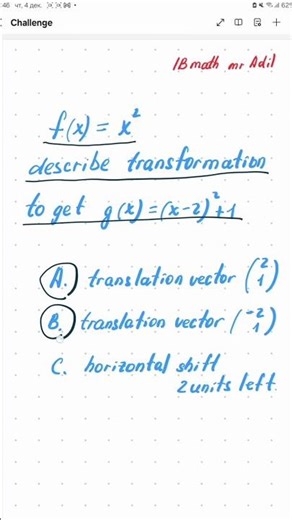 :46 чт, 4 дек.
62%
Challenge
IB math mr Adil
f(x) = x²
describe transformation
to get g(x) = (x-2)²+1
A. translation vector (2 1)
B. translation vector (-2 1)
C. horizontal shift
2 units left